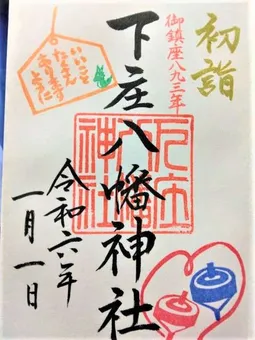 初詣
御鎮座八九三年
下庄八幡神社
いいこと
たくさん
ありますように
令和六年
一月一日